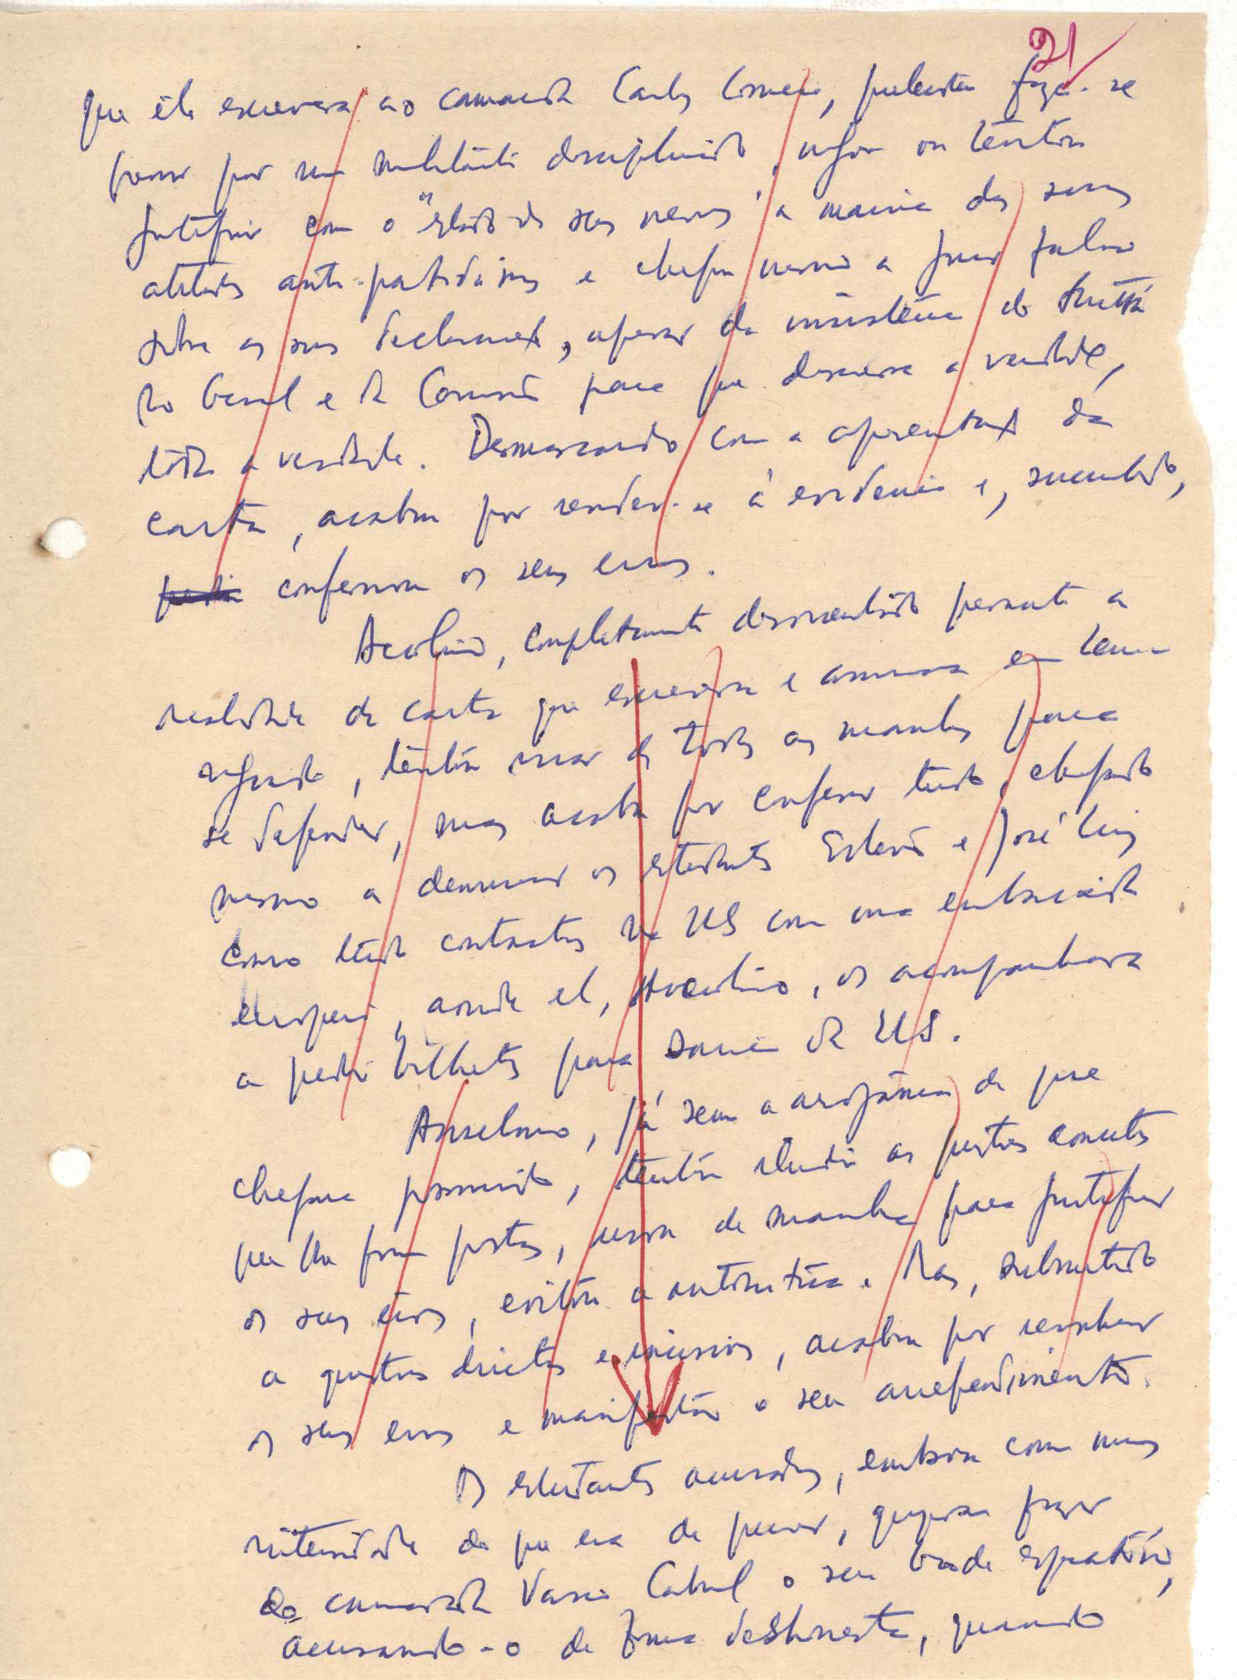 21
que ele escrevera ao camarada Carlos Correia, pretendeu fazer-se
passar por um militante disciplinado, negou ou tentou
justificar com o "estado dos seus nervos" a maioria das suas
atitudes anti-partidárias e chegou mesmo a jurar falso
sobre as suas declarações, apesar da insistência do Secretário
Geral e da Comissão para que dissesse a verdade,
toda a verdade. Desmascarado com a apresentação da
carta, acabou por render-se à evidência e, sucumbido,
confessou os seus erros.
Avelino, completamente desorientado perante a
realidade da carta que escrevera e assinara em
segundo, tentou usar de todas as manhas para
se defender, mas acaba por confessar tudo, chegando
mesmo a denunciar os estudantes Estevão e José Luis
como tendo contactos na US com uma embaixada
europeia, aonde ele, Avelino, os acompanhara
a pedir bilhetes para sair da US.
Anselmo, já sem a arrogância de que
chegara possuído, tentou iludir as questões concretas
que lhe foram postas, usou de manha para justificar
os seus erros, evitou a autocrítica. Mas, submetido
a questões directas e incisivas, acabou por reconhecer
os seus erros e manifestou o seu arrependimento.
Os estudantes acusados, embora com menos
intensidade do que era de prever, quiseram fazer
do camarada Vasco Cabral o seu bode expiatório,
acusando-o de forma deshonesta, quando